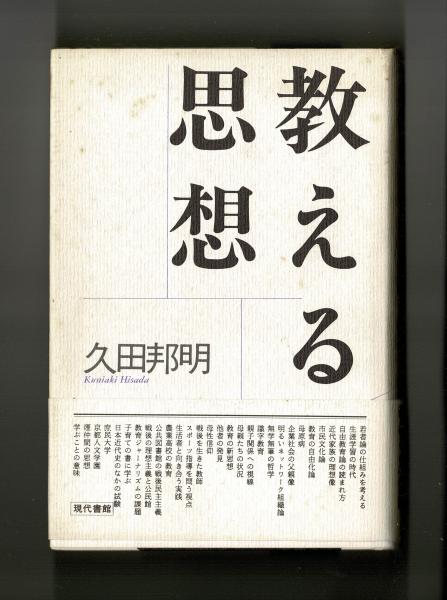 教える
思想
久田邦明
Kuniaki Hisada
若者論の仕組みを考える
生涯学習の時代
自由教育論の読まれ方
近代家族の理想像
市民文化論
教育の自由化論
母原病
企業社会の父親像
明るいネットワーク組織論
無学無筆の哲学
識字教育
親子関係への視線
母親たちの状況
教育の新思想
他者の発見
母性信仰
戦後を生きた教師
スポーツ指導を問う視点
生活者と向き合う実践
農業高校の教育
公共図書館の戦後民主主義
戦後の理想主義と公民館
教育ジャーナリズムの課題
子育ての書に学ぶ
日本近代史のなかの試験
庶民大学
京都人文学園
運仲間の思想
学ぶことの意味
現代書館